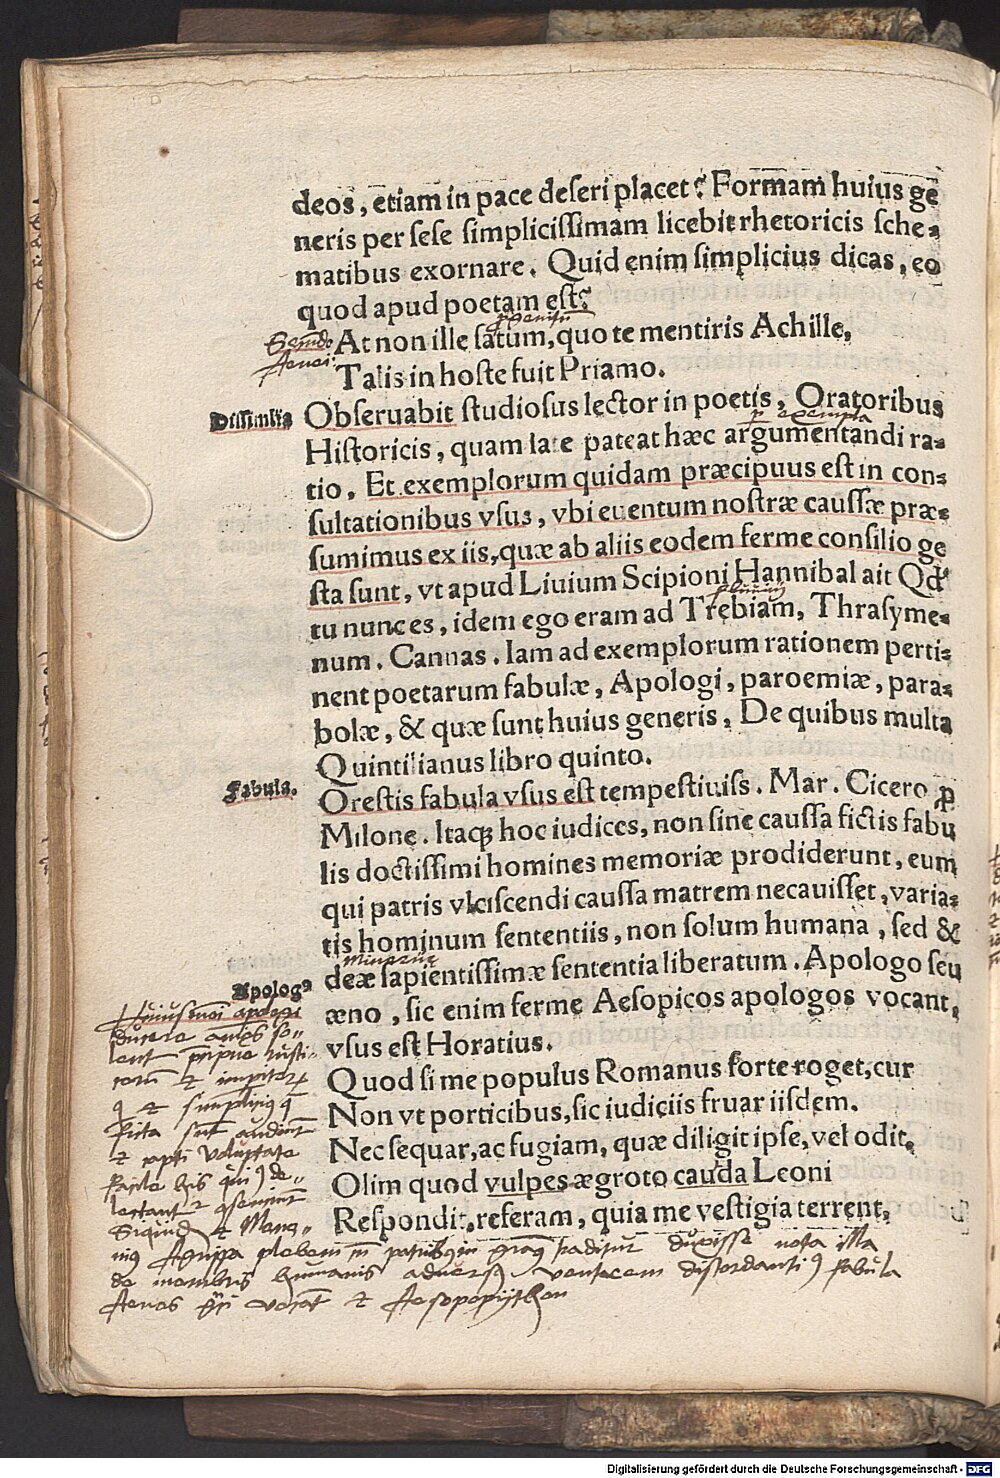 deos, etiam in pace deseri placet? Formam huius ge
neris per sese simplicissimam licebit rhetoricis sche⸗
matibus exornare. Quid enim simplicius dicas, eo
quod apud poetam est?
Secundo
Aenei:
At non ille satum, quo te mentiris Achille,
Talis in hoste fuit Priamo.
Dissimilia
Obseruabit studiosus lector in poetis, Oratoribus
p exempla
Historicis, quam late pateat hæc argumentandi ra⸗
tio. Et exemplorum quidam præcipuus est in con⸗
sultationibus vsus, vbi euentum nostræ caussæ præ⸗
sumimus ex iis, quæ ab aliis eodem ferme consilio ge
sta sunt, vt apud Liuium Scipioni Hannibal ait Qđ
fluuiu
tu nunc es, idem ego eram ad Trebiam, Thrasyme⸗
num. Cannas. Iam ad exemplorum rationem perti⸗
nent poetarum fabulæ, Apologi, paroemiæ, para⸗
bolæ, & quæ sunt huius generis. De quibus multa
Quintilianus libro quinto.
Fabula.
Orestis fabula vsus est tempestiuiss. Mar. Cicero ꝓ
Milone. Itaqꝫ hoc iudices, non sine caussa fictis fabu
lis doctissimi homines memoriæ prodiderunt, eum
qui patris vlciscendi caussa matrem necauisset, varia⸗
tis hominum sententiis, non solum humana, sed &
Mineruæ
deæ sapientissimæ sententia liberatum. Apologo seu
Apologꝰ
æno, sic enim ferme Aesopicos apologos vocant,
vsus est Horatius.
Quod si me populus Romanus forte roget, cur
Non vt porticibus, sic iudiciis fruar iisdem.
Nec sequar, ac fugiam, quæ diligit ipse, vel odit.
Olim quod vulpes ægroto cauda Leoni
Respondit, referam, quia me vestigia terrent,
Huiusmodi apologi
ducere animos so⸗
lent præcipue rusti⸗
corum et imperitorum
qui et simplicius quæ
ficta sunt audiunt
et capti voluptate
facile his quibus de⸗
lectantur consentiunt
Siquidem et Mene⸗
nius Agrippa plebem cum patribus in gratiam traditur duxisse nota illa
de membris humanis aduersus ventrem discordantibus fabula